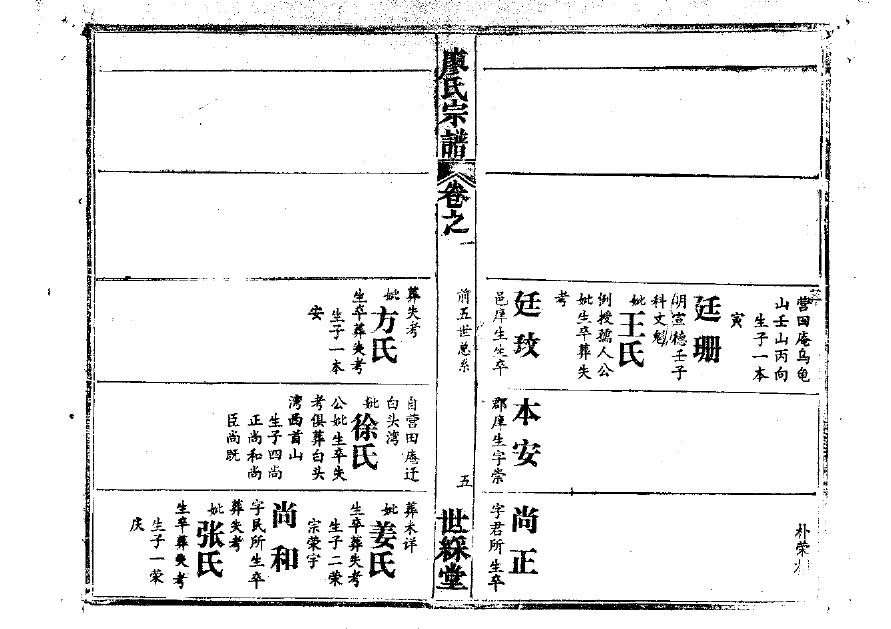 营田庵乌龟
山壬山丙向
生子一本
寅
廷珊
明宣德壬子
科文魁
妣王氏
例授孺人公
妣生卒葬失
考
廷玫
邑庠生生卒
葬失考
妣方氏
生卒葬失考
生子一本
安
本安
郡庠生字崇
自营田庵迁
白头湾
妣徐氏
公妣生卒失
考俱葬白头
湾西首山
生子四尚
正尚和尚
臣尚既
朴荣
尚正
字君所生卒
葬未详
妣姜氏
生卒葬失考
生子二荣
宗荣宇
尚和
字民所生卒
葬失考
妣张氏
生卒葬失考
生子一荣
庆
廖氏宗谱
卷之一
前五世总系
五
世綵堂